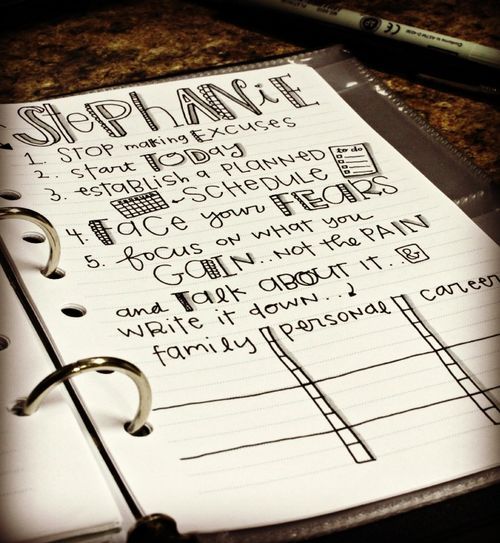 STEPHANIE
1. STOP making EXCUSES
2. start TODAY
3. establish a PLANNED
to do
SCHEDULE
4. FACE your FEARS
5. focus on what you
GAIN... not the PAIN
and TALK ABOUT it.. &
WRITE it down...
family personal career